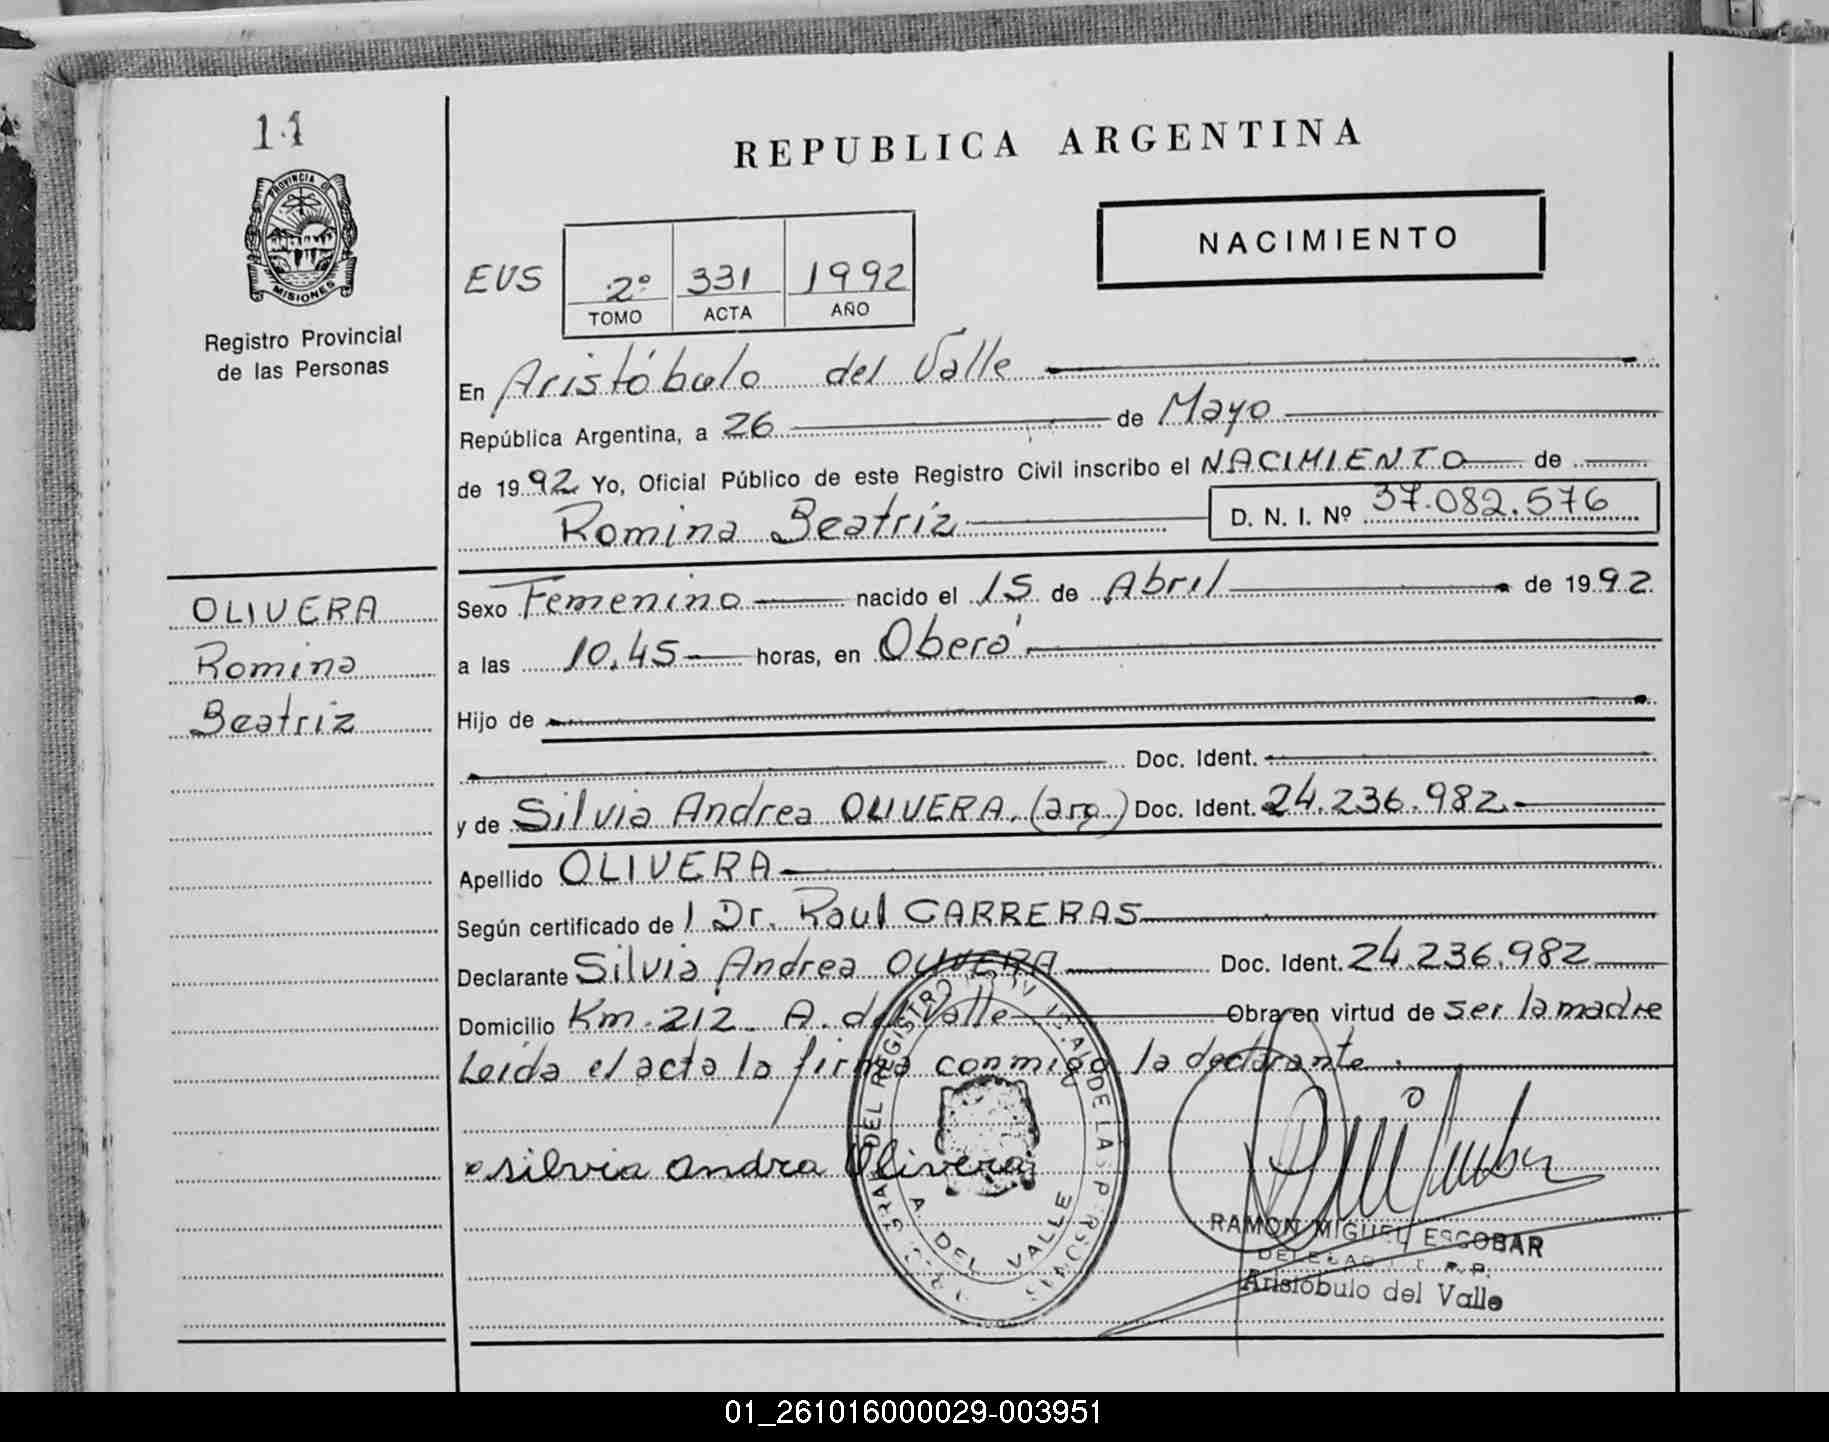 11
PROVINCIA DE
MISIONES
Registro Provincial
de las Personas
OLIVERA
Romina
Beatriz
REPUBLICA ARGENTINA
NACIMIENTO
EUS 2º 331 1992
TOMO ACTA AÑO
En Aristóbulo del Valle
República Argentina, a 26 de Mayo
de 1992 Yo, Oficial Público de este Registro Civil inscribo el NACIMIENTO de
Romina Beatriz D. N. I. Nº 37.082.576
Sexo Femenino nacido el 15 de Abril de 1992
a las 10,45 horas, en Oberá
Hijo de
Doc. Ident.
y de Silvia Andrea OLIVERA. (arg.) Doc. Ident. 24.236.982
Apellido OLIVERA
Según certificado de l Dr. Raul CARRERAS
Declarante Silvia Andrea OLIVERA Doc. Ident. 24.236.982
Domicilio Km. 212 A. del Valle Obra en virtud de ser la madre
Leida el acta la firma conmigo la declarante.
silvia andra Olivera
DEL REGISTRO DE LAS PERSONAS
A. DEL VALLE
RAMON MIGUEL ESCOBAR
Aristóbulo del Valle
01_261016000029-003951